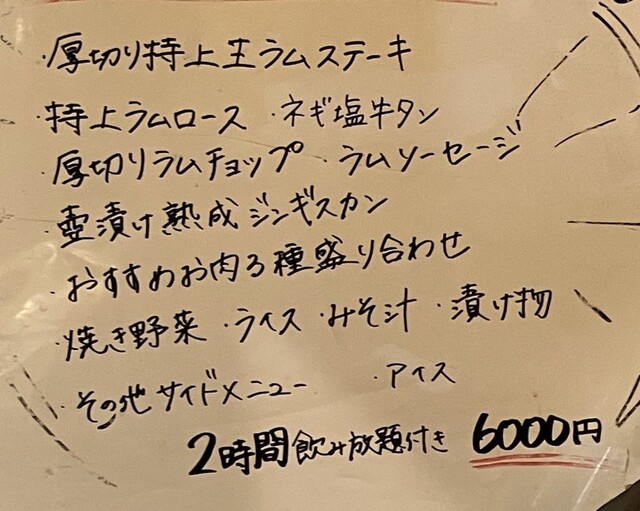 ・厚切り特上生ラムステーキ
・特上ラムロース ・ネギ塩牛タン
・厚切りラムチョップ ・ラムソーセージ
・壺漬け熟成ジンギスカン
・おすすめお肉3種盛り合わせ
・焼き野菜 ・ライス ・みそ汁 ・漬け物
・その他サイドメニュー ・アイス
2時間飲み放題付き 6000円